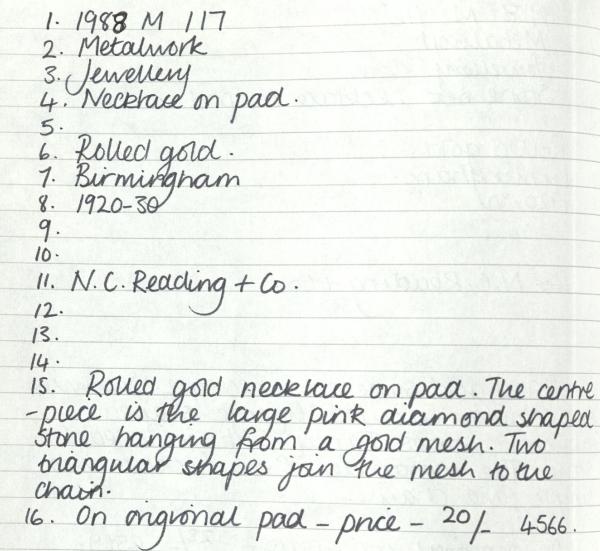 1. 1988 M 117
2. Metalwork
3. Jewellery
4. Necklace on pad.
5.
6. Rolled gold.
7. Birmingham
8. 1920-30
9.
10.
11. N.C. Reading + Co.
12.
13.
14.
15. Rolled gold necklace on pad. The centre
-piece is the large pink diamond shaped
stone hanging from a gold mesh. Two
triangular shapes join the mesh to the
chain.
16. On origional pad - price - 20/- 4566.